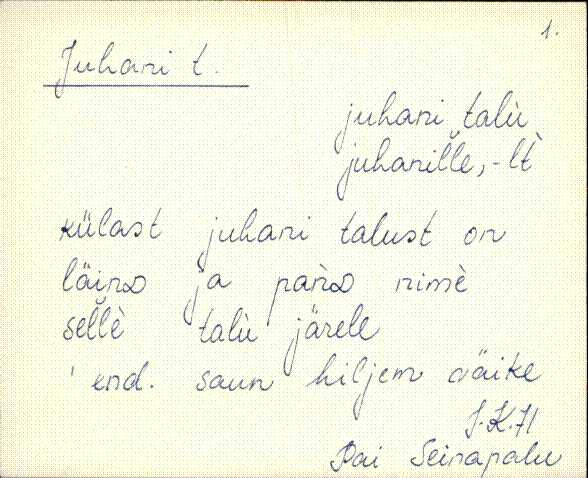 1.
Juhani t.
juhani talù
juhanil̆l̆e, -ltˋ
külast juhani talust on
läinD ja pańD nimè
sel̆l̆è talù järele
' end. saun hiljem väike
J.K.71
Pai Seinapalu